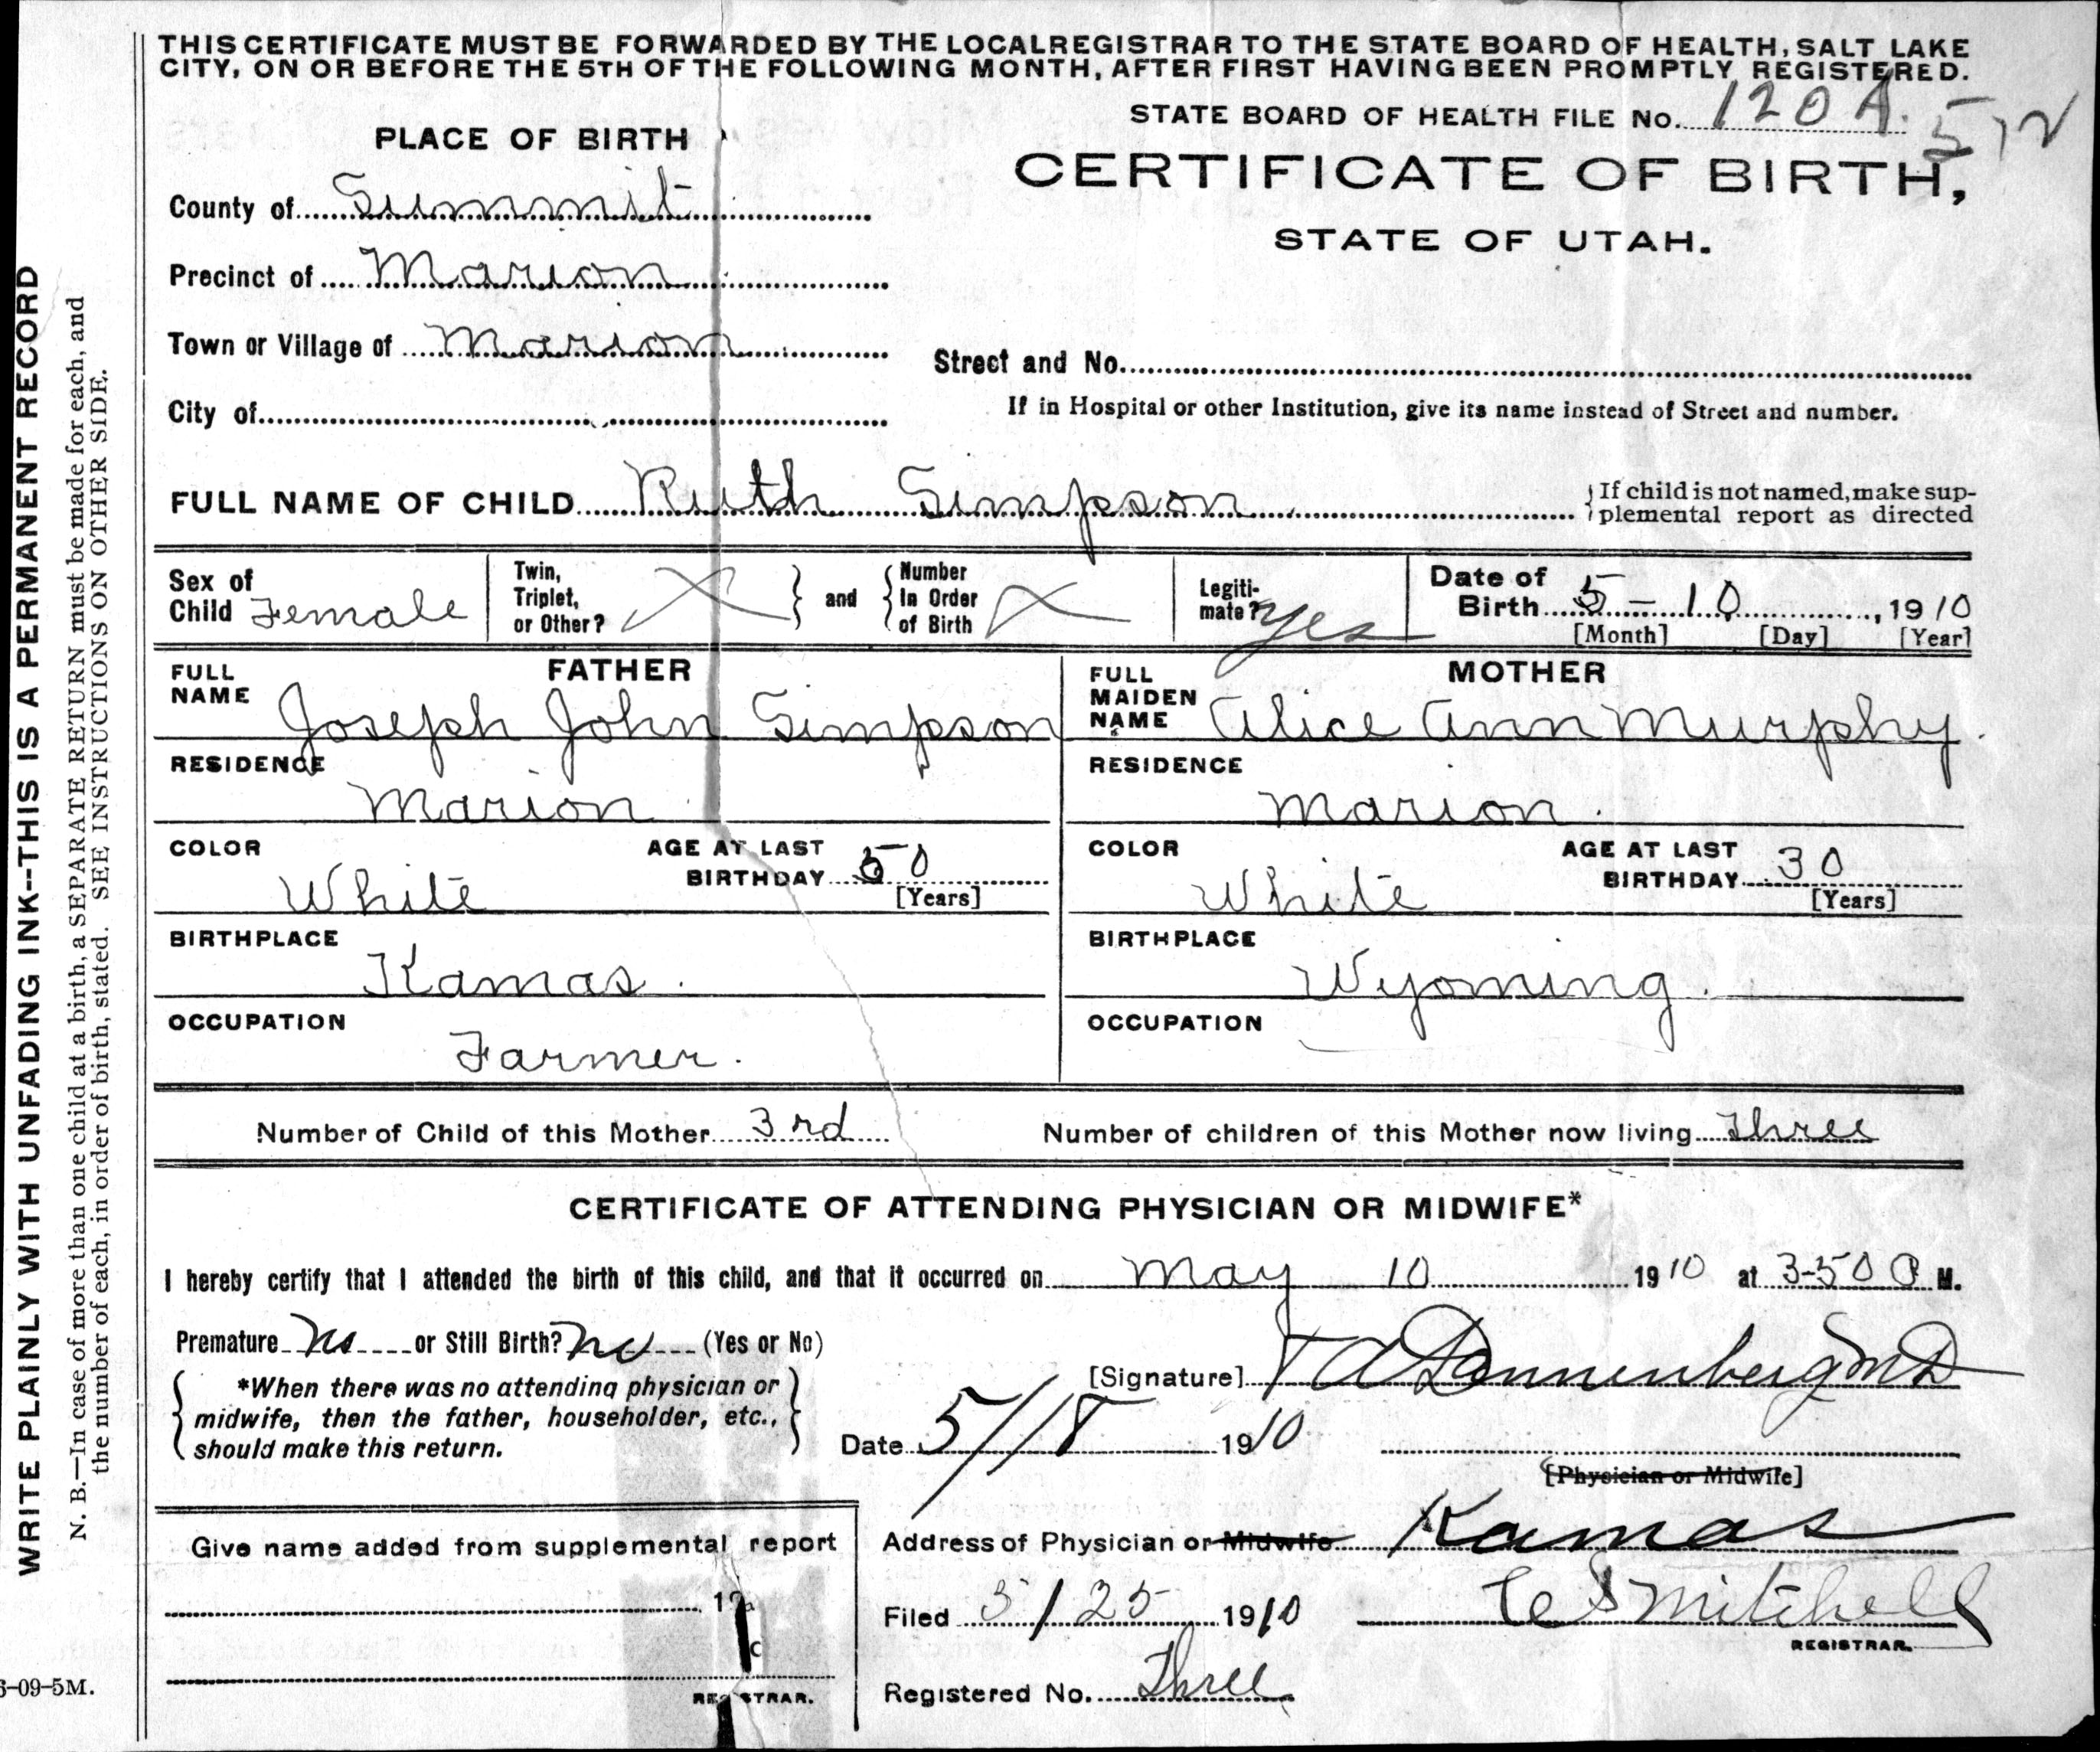 THIS CERTIFICATE MUST BE FORWARDED BY THE LOCAL REGISTRAR TO THE STATE BOARD OF HEALTH, SALT LAKE
CITY, ON OR BEFORE THE 5TH OF THE FOLLOWING MONTH, AFTER FIRST HAVING BEEN PROMPTLY REGISTERED.
STATE BOARD OF HEALTH FILE No. 120 A. 512
PLACE OF BIRTH
CERTIFICATE OF BIRTH,
STATE OF UTAH.
County of Summit
Precinct of Marion
Town or Village of Marion
Street and No.
City of
If in Hospital or other Institution, give its name instead of Street and number.
FULL NAME OF CHILD Ruth Simpson
If child is not named, make sup-
plemental report as directed
Sex of Child Female
Twin, Triplet, or Other? X
and
Number In Order of Birth X
Legiti-mate? Yes
Date of Birth 5 - 10, 1910
[Month] [Day] [Year]
FATHER
FULL NAME Joseph John Simpson
RESIDENCE
Marion
COLOR White
AGE AT LAST BIRTHDAY 50
[Years]
BIRTHPLACE
Kamas.
OCCUPATION
Farmer.
MOTHER
FULL MAIDEN NAME Alice Ann Murphy.
RESIDENCE
Marion.
COLOR White
AGE AT LAST BIRTHDAY 30
[Years]
BIRTHPLACE
Wyoming.
OCCUPATION
Number of Child of this Mother 3rd
Number of children of this Mother now living Three
CERTIFICATE OF ATTENDING PHYSICIAN OR MIDWIFE*
I hereby certify that I attended the birth of this child, and that it occurred on May 10 1910 at 3-50 P M.
Premature no or Still Birth? no (Yes or No)
*When there was no attending physician or
midwife, then the father, householder, etc.,
should make this return.
[Signature] Dannenberg MD
Date 5/18 1910
[Physician or Midwife]
Address of Physician or Midwife Kamas
Filed 5/25 1910
C S Mitchell
REGISTRAR.
Registered No. Three
Give name added from supplemental report
REGISTRAR.
WRITE PLAINLY WITH UNFADING INK--THIS IS A PERMANENT RECORD
N. B.—In case of more than one child at a birth, a SEPARATE RETURN must be made for each, and
the number of each, in order of birth, stated. SEE INSTRUCTIONS ON OTHER SIDE.
6-09-5M.